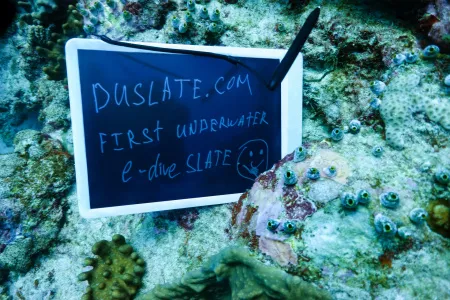 DUSLATE.COM
FIRST UNDERWATER
e-dive SLATE